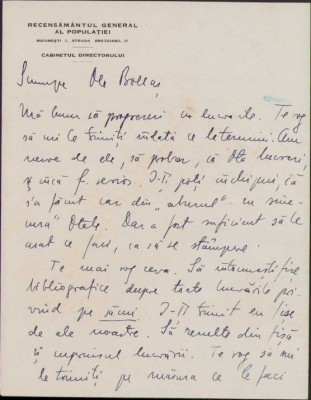 RECENSĂMÂNTUL GENERAL
AL POPULAȚIEI
CABINETUL DIRECTORULUI
Scumpe Ole Boldaș
Mă bucur că progresezi cu lucrările. Te rog
să mi le trimiți îndată ce le termini. Am
nevoie de ele, să probez, că lucrezi,
și încă f. serios. Iți poți închipui, că
s'a făcut caz din "absența" ta
Dar a fost suficient să le
arăt ce faci, ca să se stâmpere.
Te mai rog ceva. Să întocmești fișe
bibliografice despre toate lucrările pri-
vind pe țărani. Iți trimit eu fișe
de ale noastre. Să rezulte din fișă
și cuprinsul lucrării. Te rog să mi
le trimiți pe măsura ce le faci